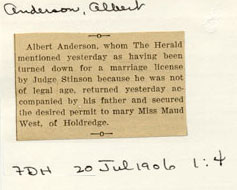 Anderson, Albert
Albert Anderson, whom The Herald
mentioned yesterday as having been
turned down for a marriage license
by Judge Stinson because he was not
of legal age, returned yesterday ac-
companied by his father and secured
the desired permit to mary Miss Maud
West, of Holdredge.
7DH 20 Jul 1906 1:4